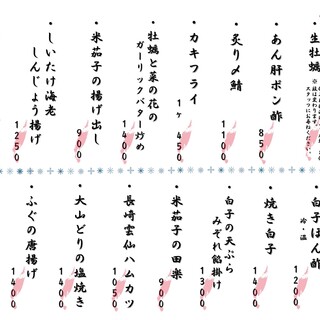 生牡蠣
・あん肝ポン酢
850
・炙り〆鯖
1100
・カキフライ
1ヶ 450
・牡蠣と菜の花の
ガーリックバター炒め
1400
・米茄子の揚げ出し
900
・しいたけ海老
しんじょう揚げ
1250
白子ぽん酢
冷・温
1200
・焼き白子
1400
・白子の天ぷら
みぞれ餡掛け
1300
・米茄子の田楽
900
・長崎雲仙ハムカツ
1050
・大山どりの塩焼き
1400
・ふぐの唐揚げ
1400